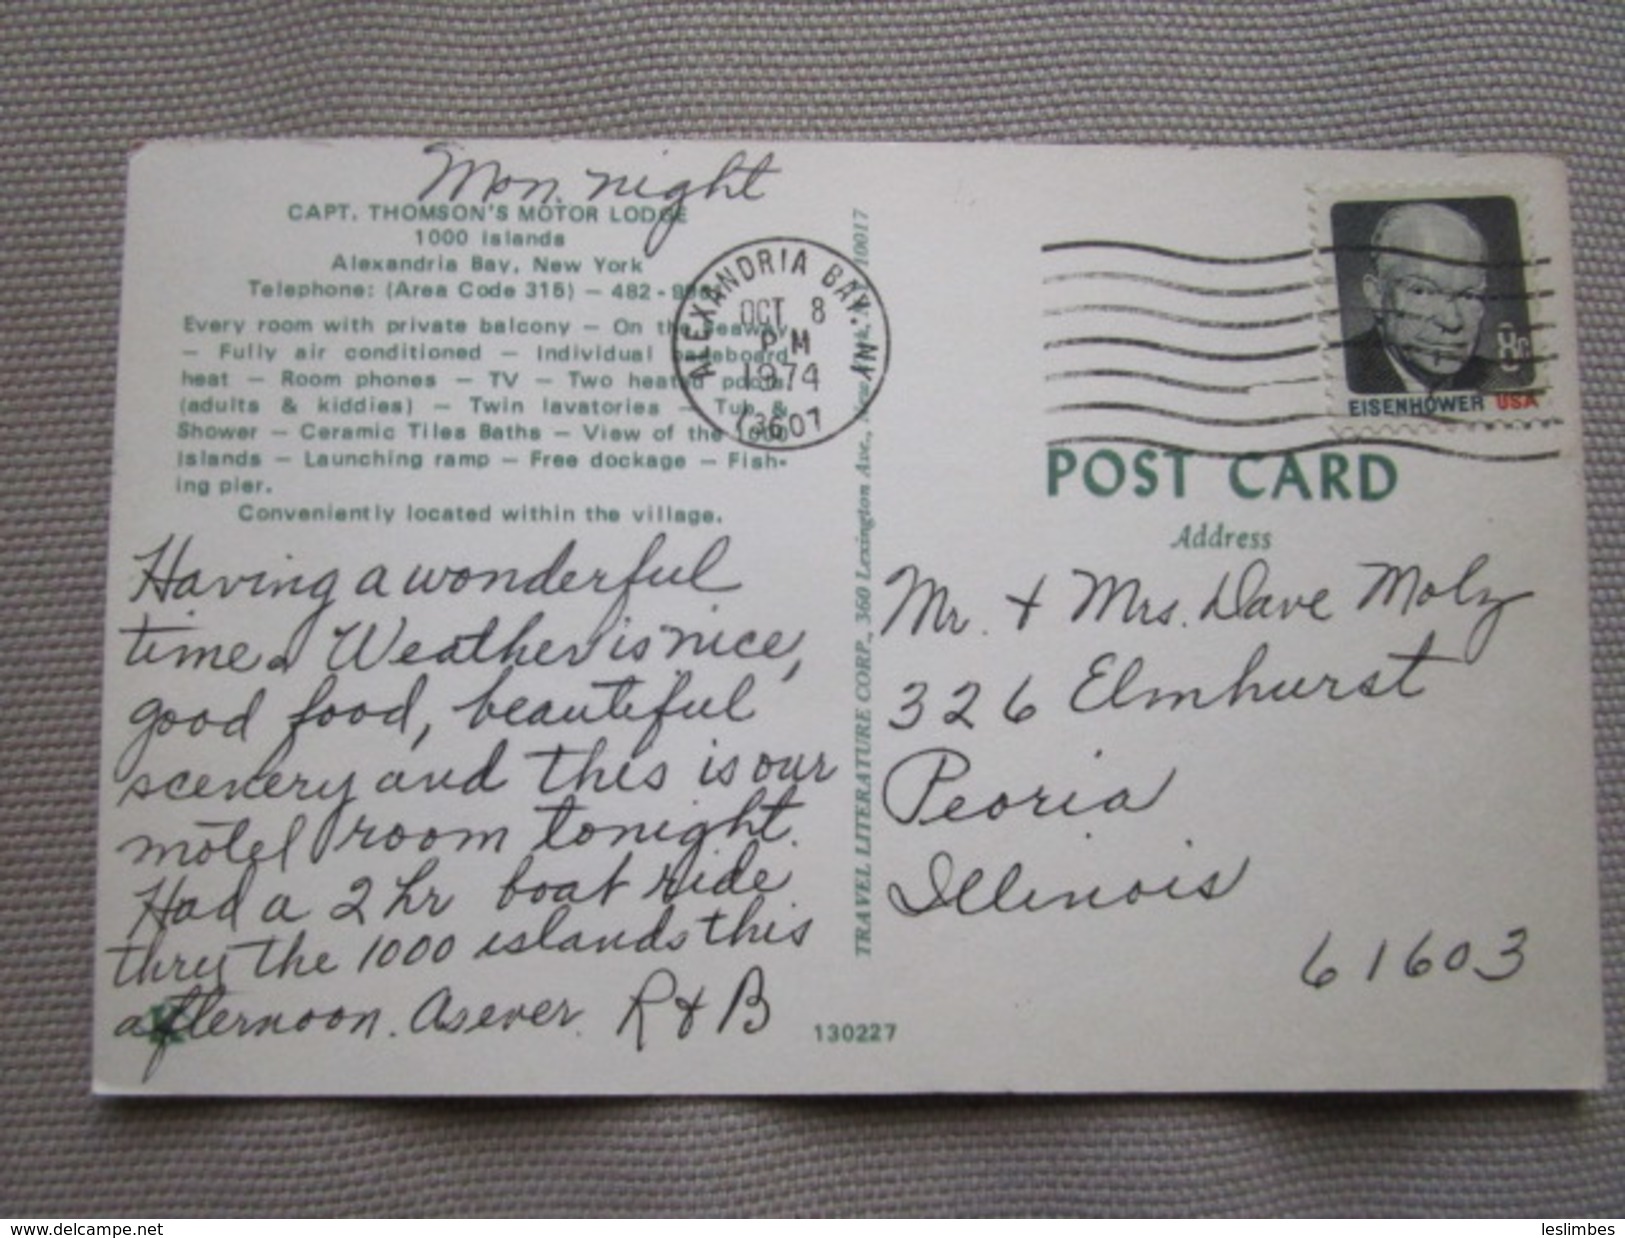 Mon. night
CAPT. THOMSON'S MOTOR LODGE
1000 Islands
Alexandria Bay, New York
Telephone: (Area Code 315) — 482-9
Every room with private balcony — On the Seaway
— Fully air conditioned — Individual baseboard
heat — Room phones — TV — Two heated pools
(adults & kiddies) — Twin lavatories — Tub &
Shower — Ceramic Tiles Baths — View of the 1000
Islands — Launching ramp — Free dockage — Fish-
ing pier.
Conveniently located within the village.
Having a wonderful
time. Weather is nice,
good food, beautiful
scenery and this is our
motel room tonight.
Had a 2 hr boat ride
thru the 1000 islands this
afternoon. As ever. R & B
130227
TRAVEL LITERATURE CORP., 360 Lexington Ave., New York, N.Y. 10017
ALEXANDRIA BAY, NY
OCT 8
PM
1974
13607
8c
EISENHOWER USA
POST CARD
Address
Mr. + Mrs. Dave Molz
326 Elmhurst
Peoria
Illinois
61603
www.delcampe.net
leslimbes